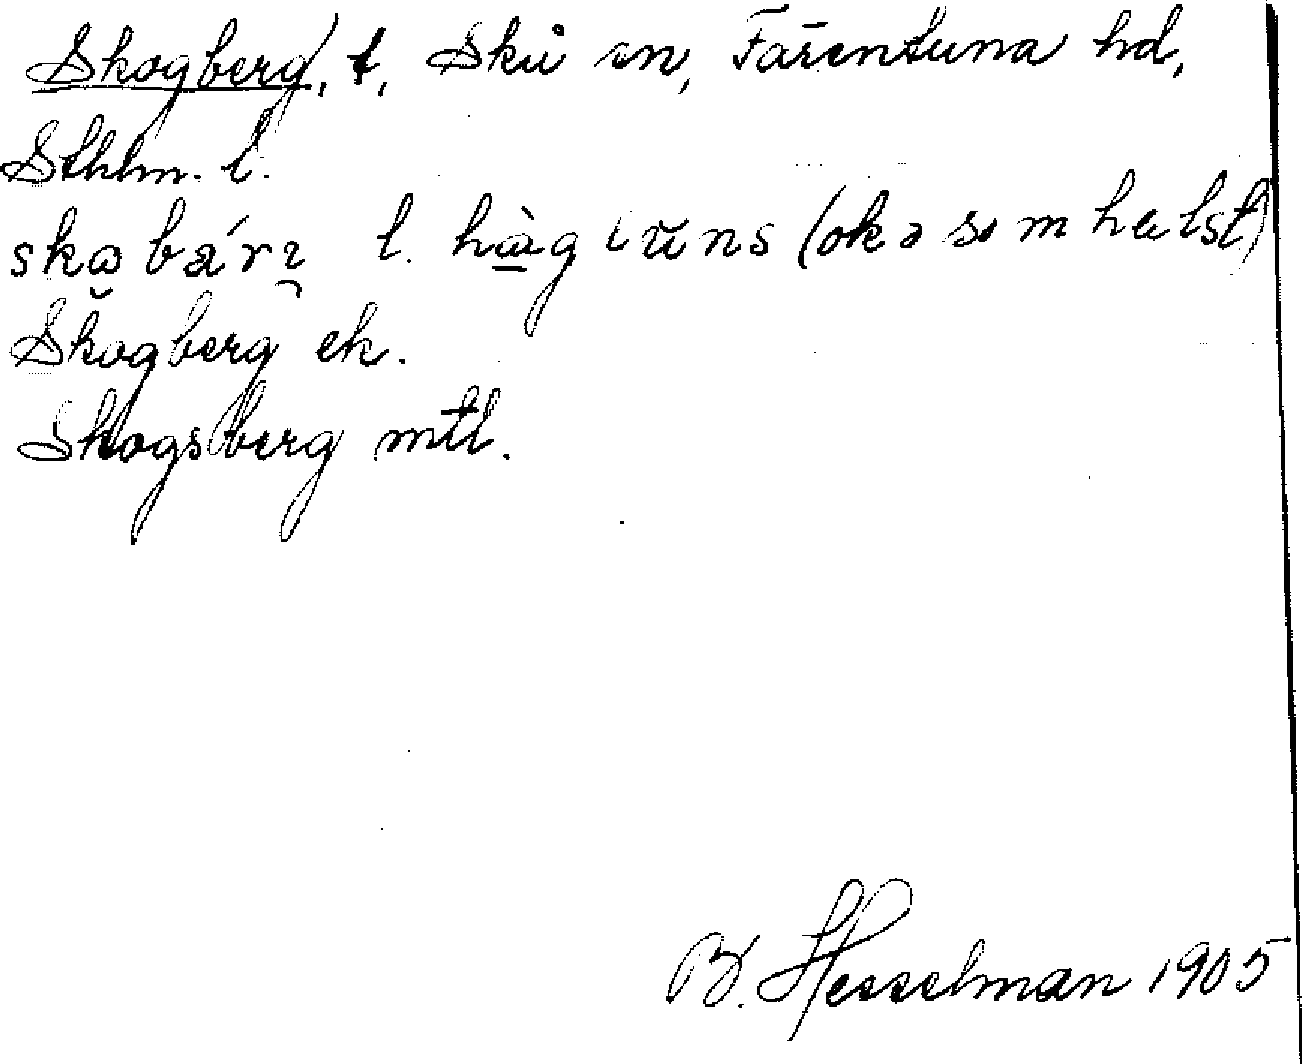 Skogberg, t, Skå sn, Färentuna hd,
Sthlm. l.
skɷbárɩ l. hàg (okə som hɷlst)
Skogberg ek.
Skogsberg mtl.
B. Hesselman 1905